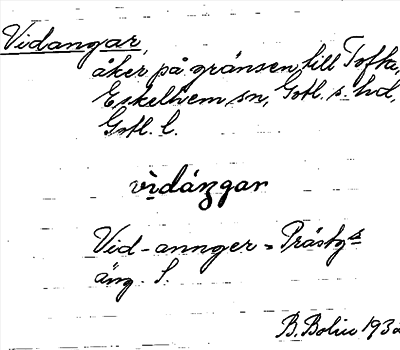 Vidangar,
åker på gränsen till Tofta,
Eskelhem sn, Gotl. s. hd,
Gotl. l.
Vid-annger = Prästg:s
äng. S.
B. Bolin 193